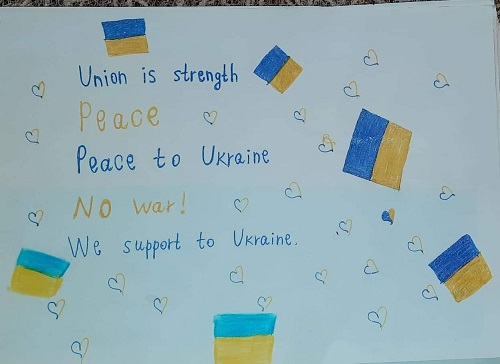 Union is strength
Peace
Peace to Ukraine
No war!
We support to Ukraine.